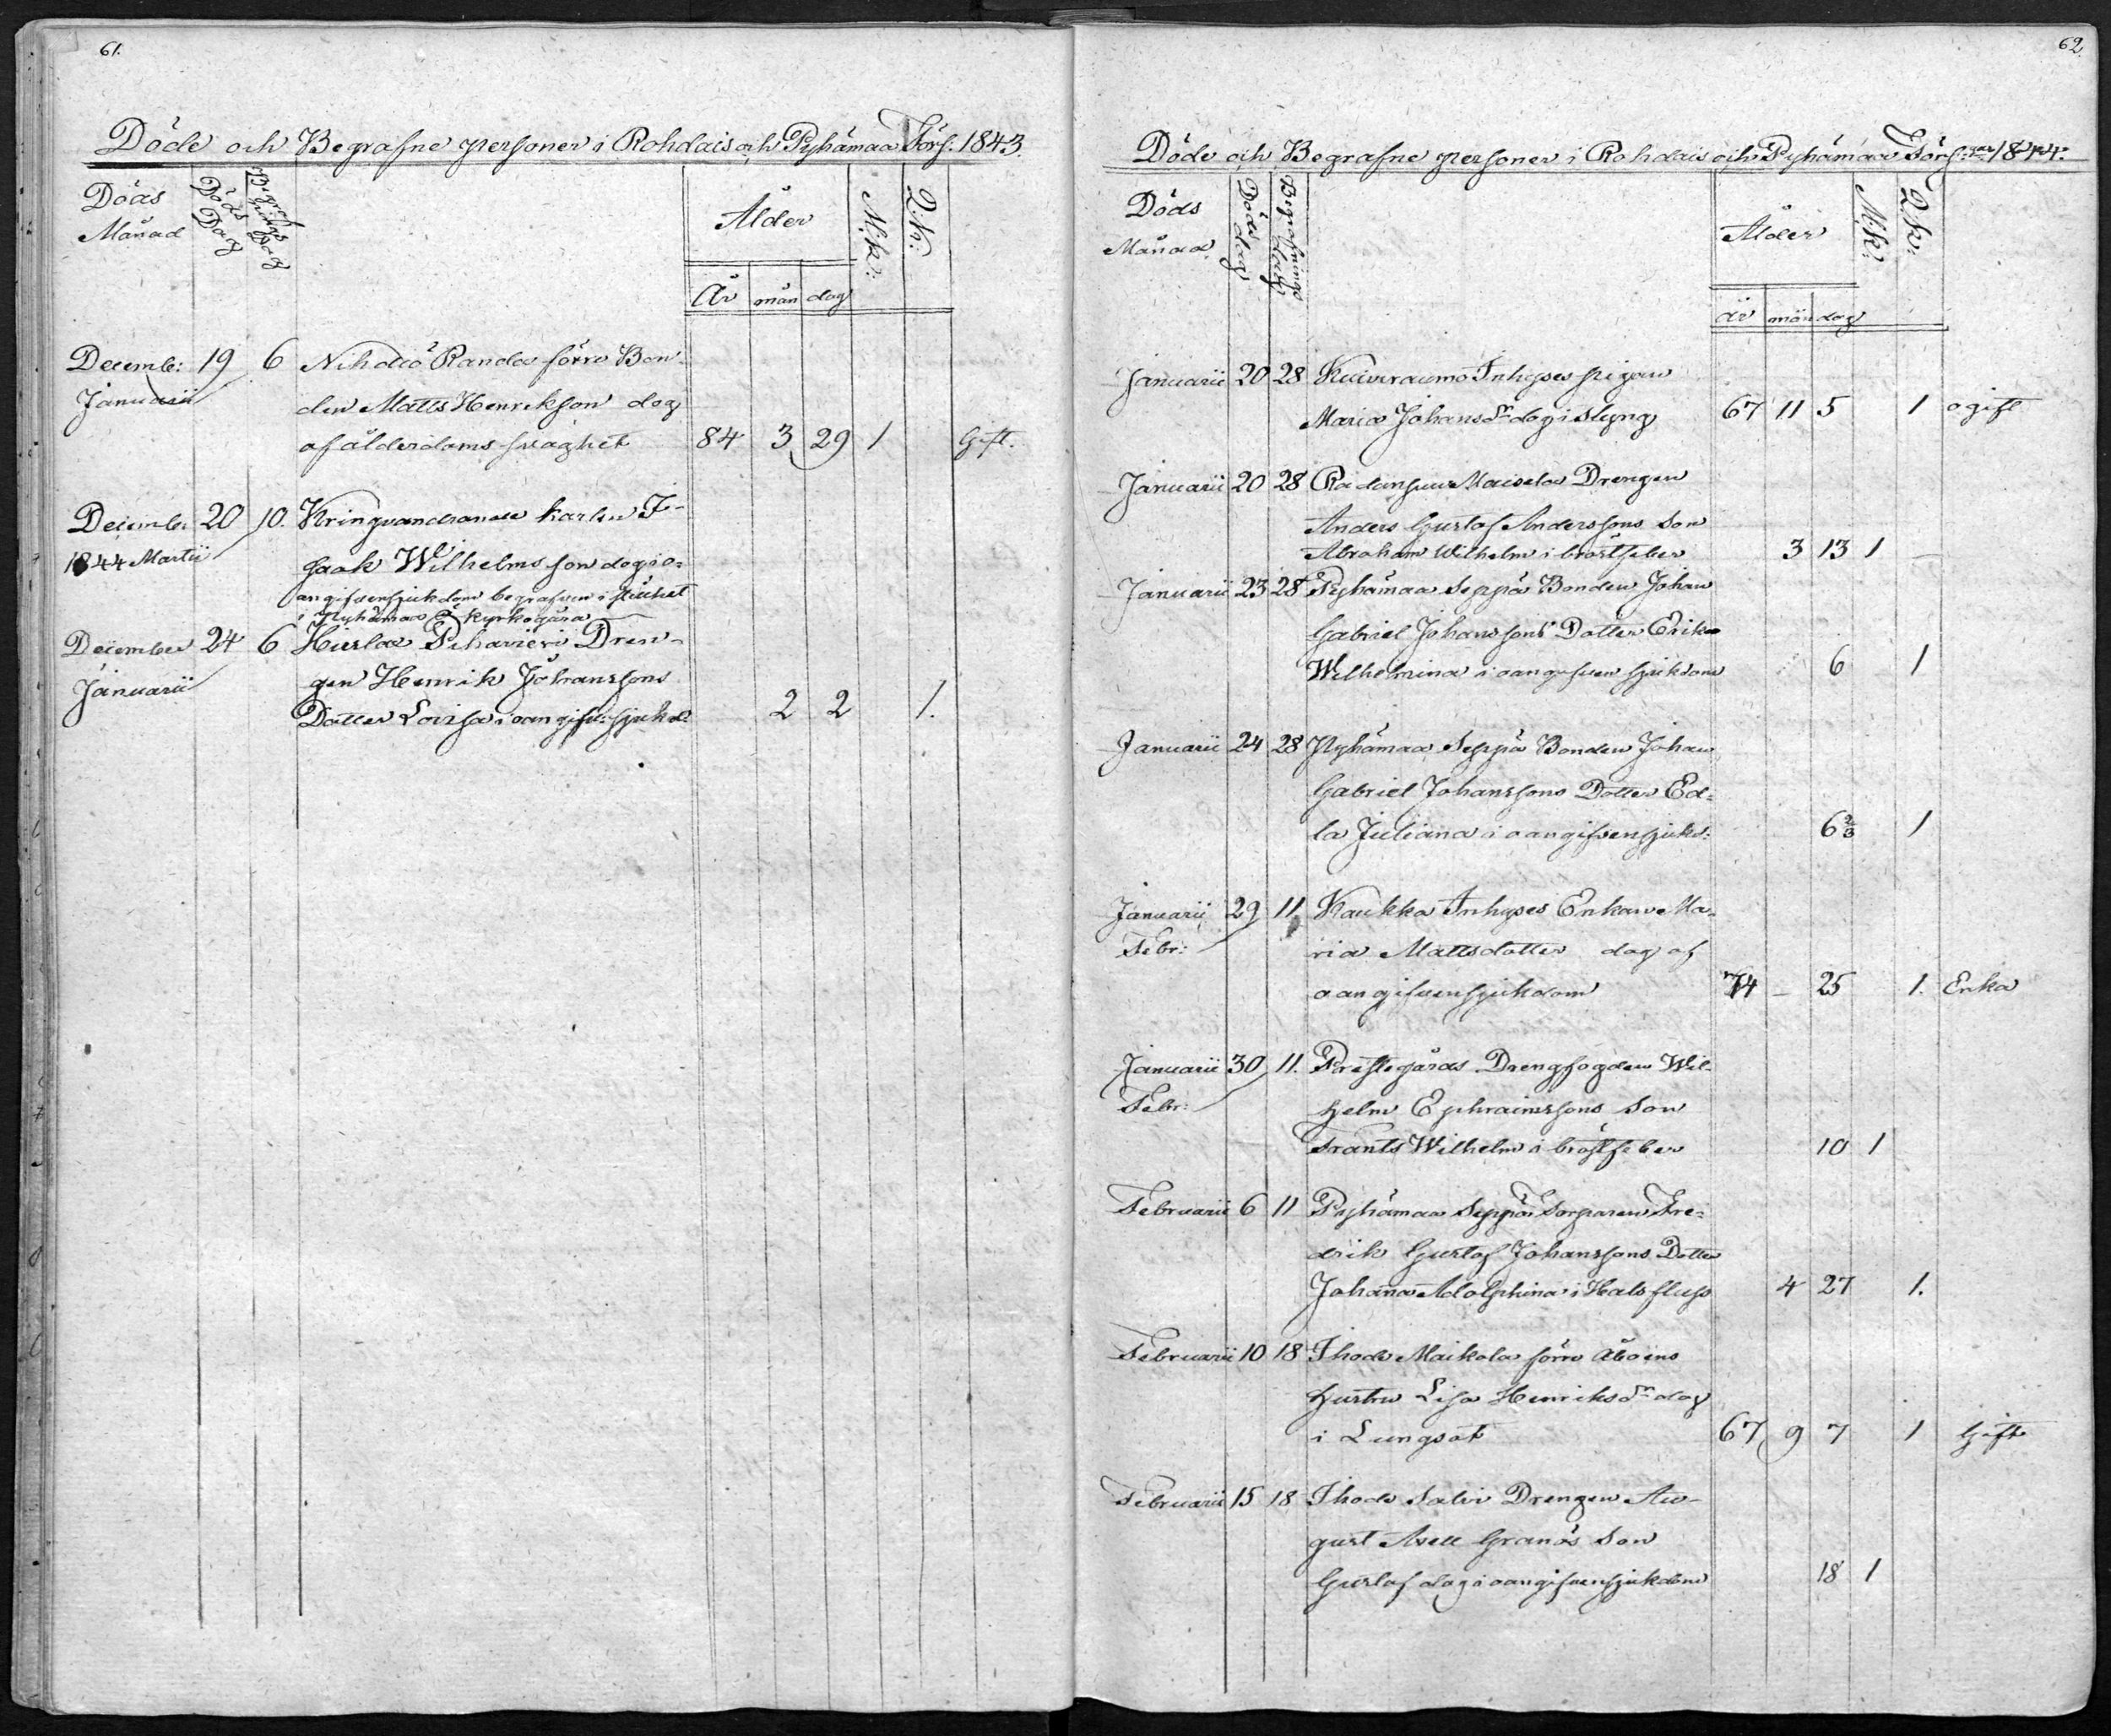 61.
Döde och Begrafne personer i Rohdais och Pyhämaa Förs: 1843.
Döds Månad
Döds Dag
Begrafnings Dag
Ålder
M:k:
Q:k:
År mån dag
Decemb: 19 6 Nihdiö Randa förra Bon-
Januarii den Matts Henrikson dog
af ålderdoms svaghet 84 3 29 1 Gift.
Decemb. 20 10. Kringvandrande karlen I-
1844 Martii saak Wilhelmsson dog i o=
angifven sjukdom begrafven i stillhet
i Pyhämaa kyrkogård
December 24 6 Hirslax Drän-
Januarii gen Henrik Johanssons
Dotter Lovisa i oangifv: sjukd: 2 2 1.
62.
Döde och Begrafne personer i Rohdais och Pyhämaa Förs:gar 1844.
Döds Månad
Döds dag
Begrafnings dag
Ålder
M:k:
Q:k:
år mån dag
Januarii 20 28 Kuivraumo Inhyses pigan
Maria Johansdr dog i styng 67 11 5 1 ogift
Januarii 20 28 Maisela Drengen
Anders Gustaf Anderssons Son
Abraham Wilhelm i bröstfeber 3 13 1 —
Januarii 23 28 Pyhämaa Seppä Bonden Johan
Gabriel Johanssons Dotter Erika
Wilhelmina i oangifven sjukdom 6 1
Januarii 24 28 Pyhämaa Seppä Bonden Johan
Gabriel Johanssons Dotter Ed=
la Juliana i oangifven sjukd: 6 2/3 1
Januarii 29 11. Kaukka Inhyses Enkan Ma-
Febr: ria Mattsdotter dog af
oangifven sjukdom 74 — 25 1. Enka
Januarii 30 11. Prestegårds Drengfogden Wil-
Febr: helm Ephraimssons Son
Frants Wilhelm i bröstfeber 10 1
Februarii 6 11 Pyhämaa Seppä Torparen Fre=
drik Gustaf Johanssons Dotter
Johanna Adolphina i Halsfluss 4 27 1.
Februarii 10 18 Ihode Maikola förra Åboens
hustru Lisa Henriksdr dog
i Lungsot 67 9 7 1 Gift
Februarii 15 18 Ihode Salvi Drengen Au-
gust Axell Granös Son
Gustaf dog i oangifven sjukdom 18 1